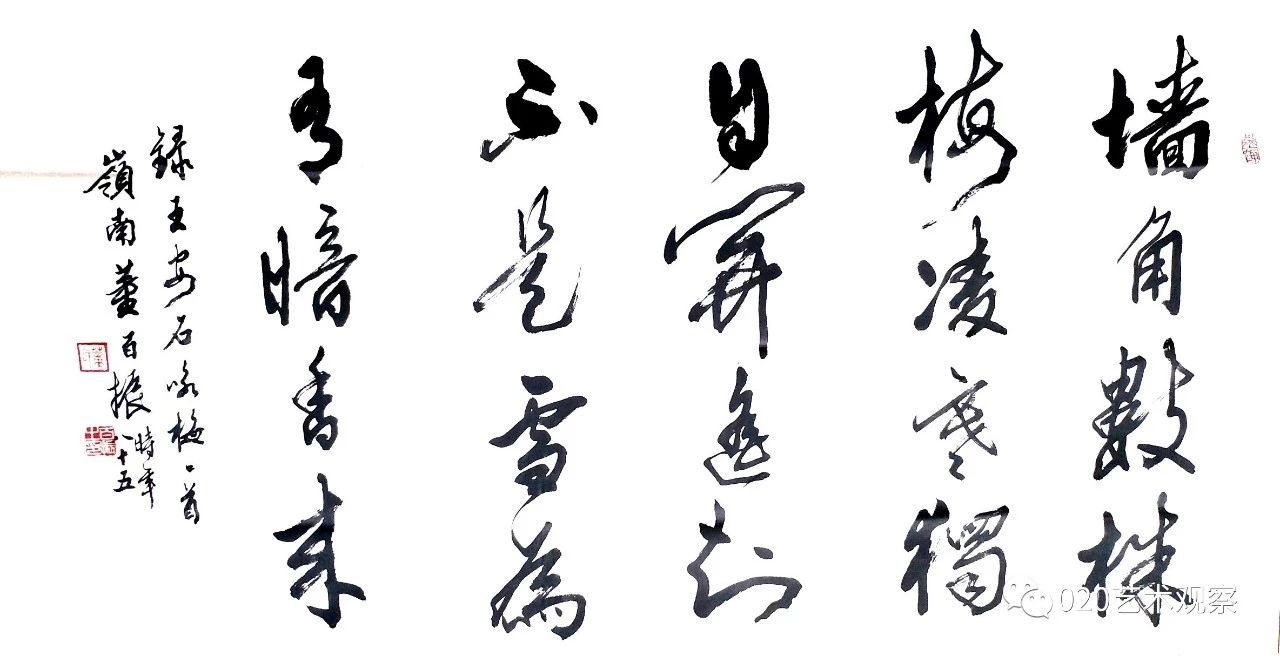 墙角數株
梅凌寒獨
自開遙知
不是雪為
有暗香来
録王安石咏梅一首
嶺南董百振
時年
八十五
020艺术观察